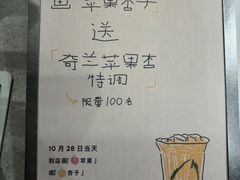 画「苹果杏子」
送
「奇兰苹果杏
特调」
限量100名
10月28日当天
到店画「🍎苹果」
或「🍑杏子」